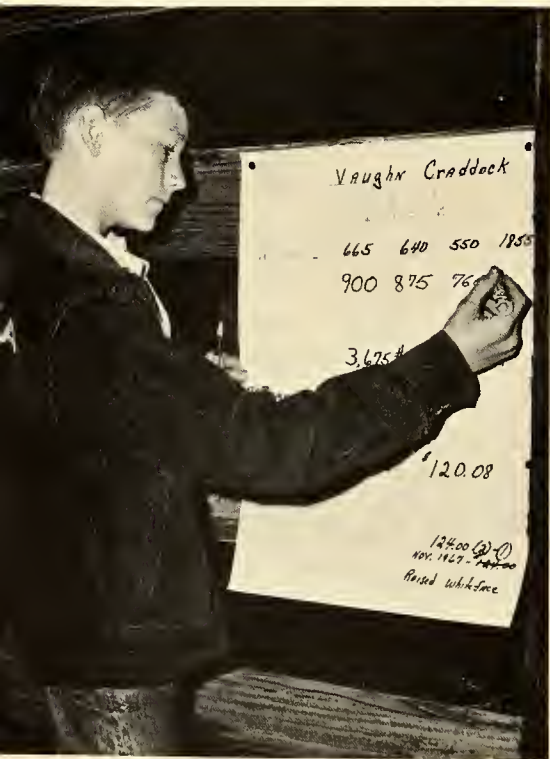 Vaughn Craddock
665 640 550 1855
900 875
3,675#
$120.08
124.00 (2)-(1)
Nov. 1967 -
Raised Whiteface